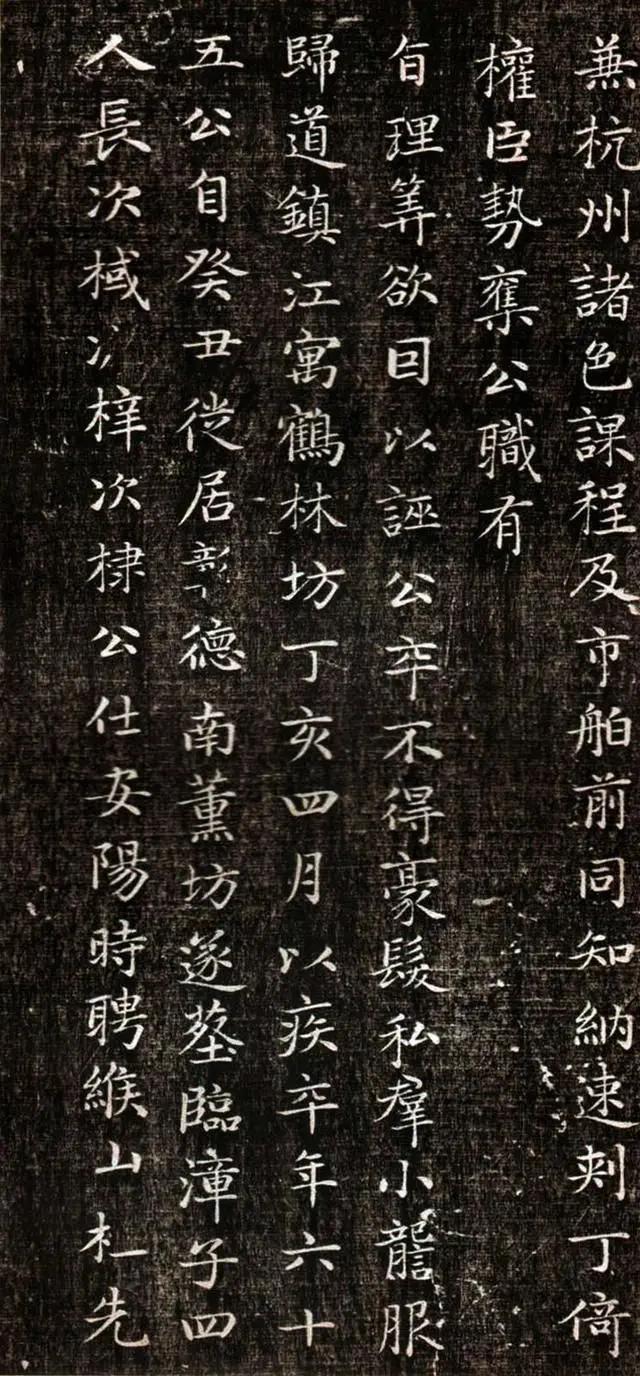 兼杭州諸色課程及市舶前同知納速剌丁倚
權臣勢奪公職有
旨理筭欲因以誣公卒不得豪髮私羣小讋服
歸道鎮江寓鶴林坊丁亥四月以疾卒年六十
五公自癸丑徙居彰德南薰坊遂葬臨漳子四
人長次棫次梓次棣公仕安陽時聘緱山杜先